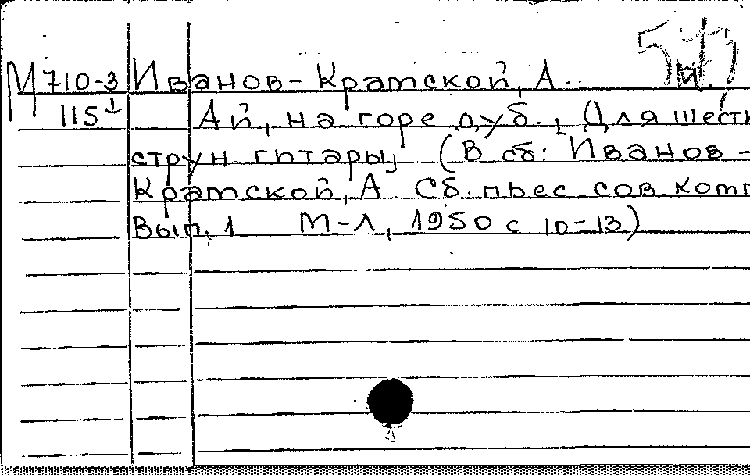 М710-3 Иванов-Крамской, А.
115
Ай, на горе дуб., (Для шести
струн гитары) (В сб: Иванов-
Крамской, А Сб. пьес сов комп
Вып. 1 М-Л, 1950 с 10-13)